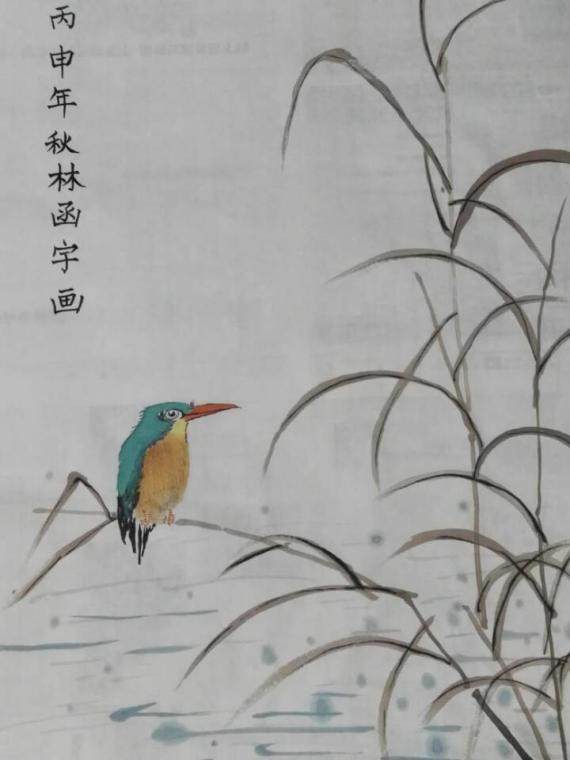 丙申年秋林函宇画